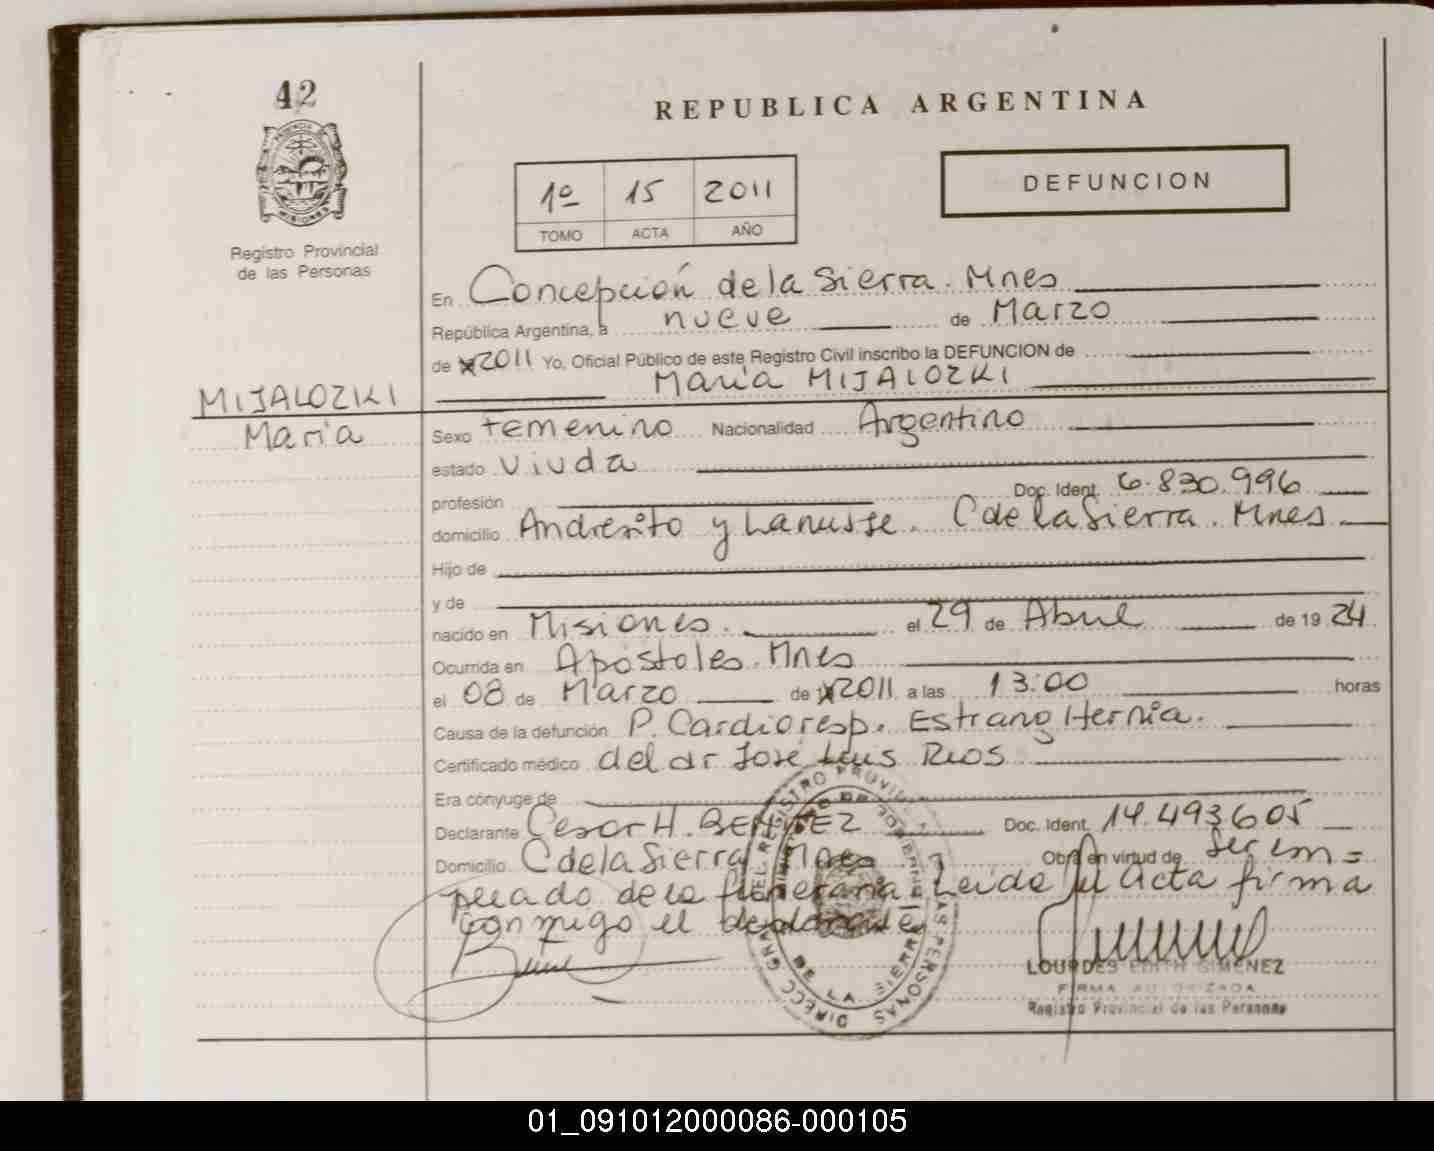 42
REPUBLICA ARGENTINA
MISIONES
Registro Provincial
de las Personas
1º 15 2011
TOMO ACTA AÑO
DEFUNCION
En Concepción de la Sierra. Mnes
República Argentina, a nueve de Marzo
de 2011 Yo, Oficial Público de este Registro Civil inscribo la DEFUNCION de
María MIJALOZKI
MIJALOZKI
María
Sexo Femenino Nacionalidad Argentino
estado Viuda
profesión Doc. Ident. 6.830.996
domicilio Andresito y Lanusse. C de la Sierra. Mnes
Hijo de
y de
nacido en Misiones. el 29 de Abril de 19 24
Ocurrida en Apostoles. Mnes
el 08 de Marzo de 2011 a las 13:00 horas
Causa de la defunción P. Cardioresp. Estrang Hernia.
Certificado médico del dr José Luis Rios
Era cónyuge de
Declarante Cesar H. BENITEZ Doc. Ident. 14.493.605
Domicilio C de la Sierra Mnes Obra en virtud de Ser em=
pleado de la funeraria. Leida el Acta firma
conmigo el declarante
DE LA SIERRA
LAS PERSONAS
LOURDES EDITH GIMENEZ
FIRMA AUTORIZADA
Registro Provincial de las Personas
01_091012000086-000105